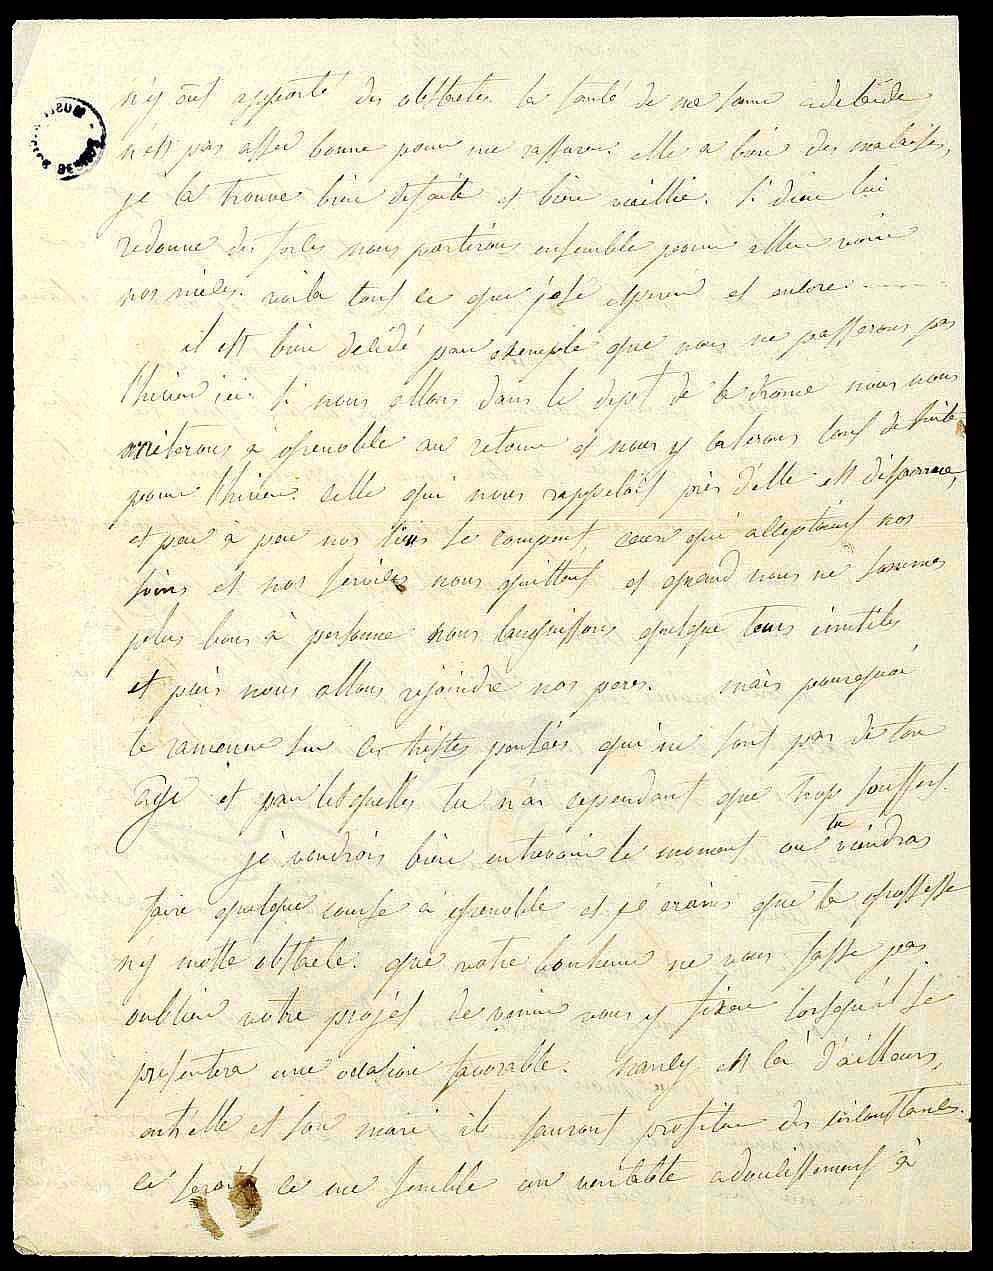 n'y ont apporté des obstacles. la santé de ma sœur adelaïde
n'est pas assez bonne pour me rassurer. elle a bien des malaises,
je la trouve bien defaite et bien vieillie. si dieu lui
redonne des forces nous partirons ensemble pour aller voir
nos nièces. voila tout ce que j'ose esperer et encore.......
il est bien décidé par exemple que nous ne passerons pas
l'hiver ici. si nous allons dans le dept de la drome nous nous
arreterons à grenoble au retour et nous y caserons tout de suite
pour l'hiver. celle qui nous rappelait près d'elle est disparue,
et peu à peu nos liens se rompent ceux qui acceptoient nos
soins et nos services nous quittent et quand nous ne sommes
plus bons à personne nous languissons quelque tems inutiles
et puis nous allons rejoindre nos peres. mais pourquoi
te ramener sur ces tristes pensées qui ne sont pas de ton
age et par lesquelles tu n'as cependant que trop souffert.
je voudrois bien entrevoir le moment ou tu viendras
faire quelque course à grenoble et je crains que ta grossesse
n'y mette obstacle. que votre bonheur ne vous fasse pas
oublier votre projet de venir vous y fixer lorsqu'il se
presentera une occasion favorable. nancy est là d'ailleurs,
entr'elle et son mari ils sauront profiter des circonstances.
ce seroit ce me semble un veritable adoucissement à